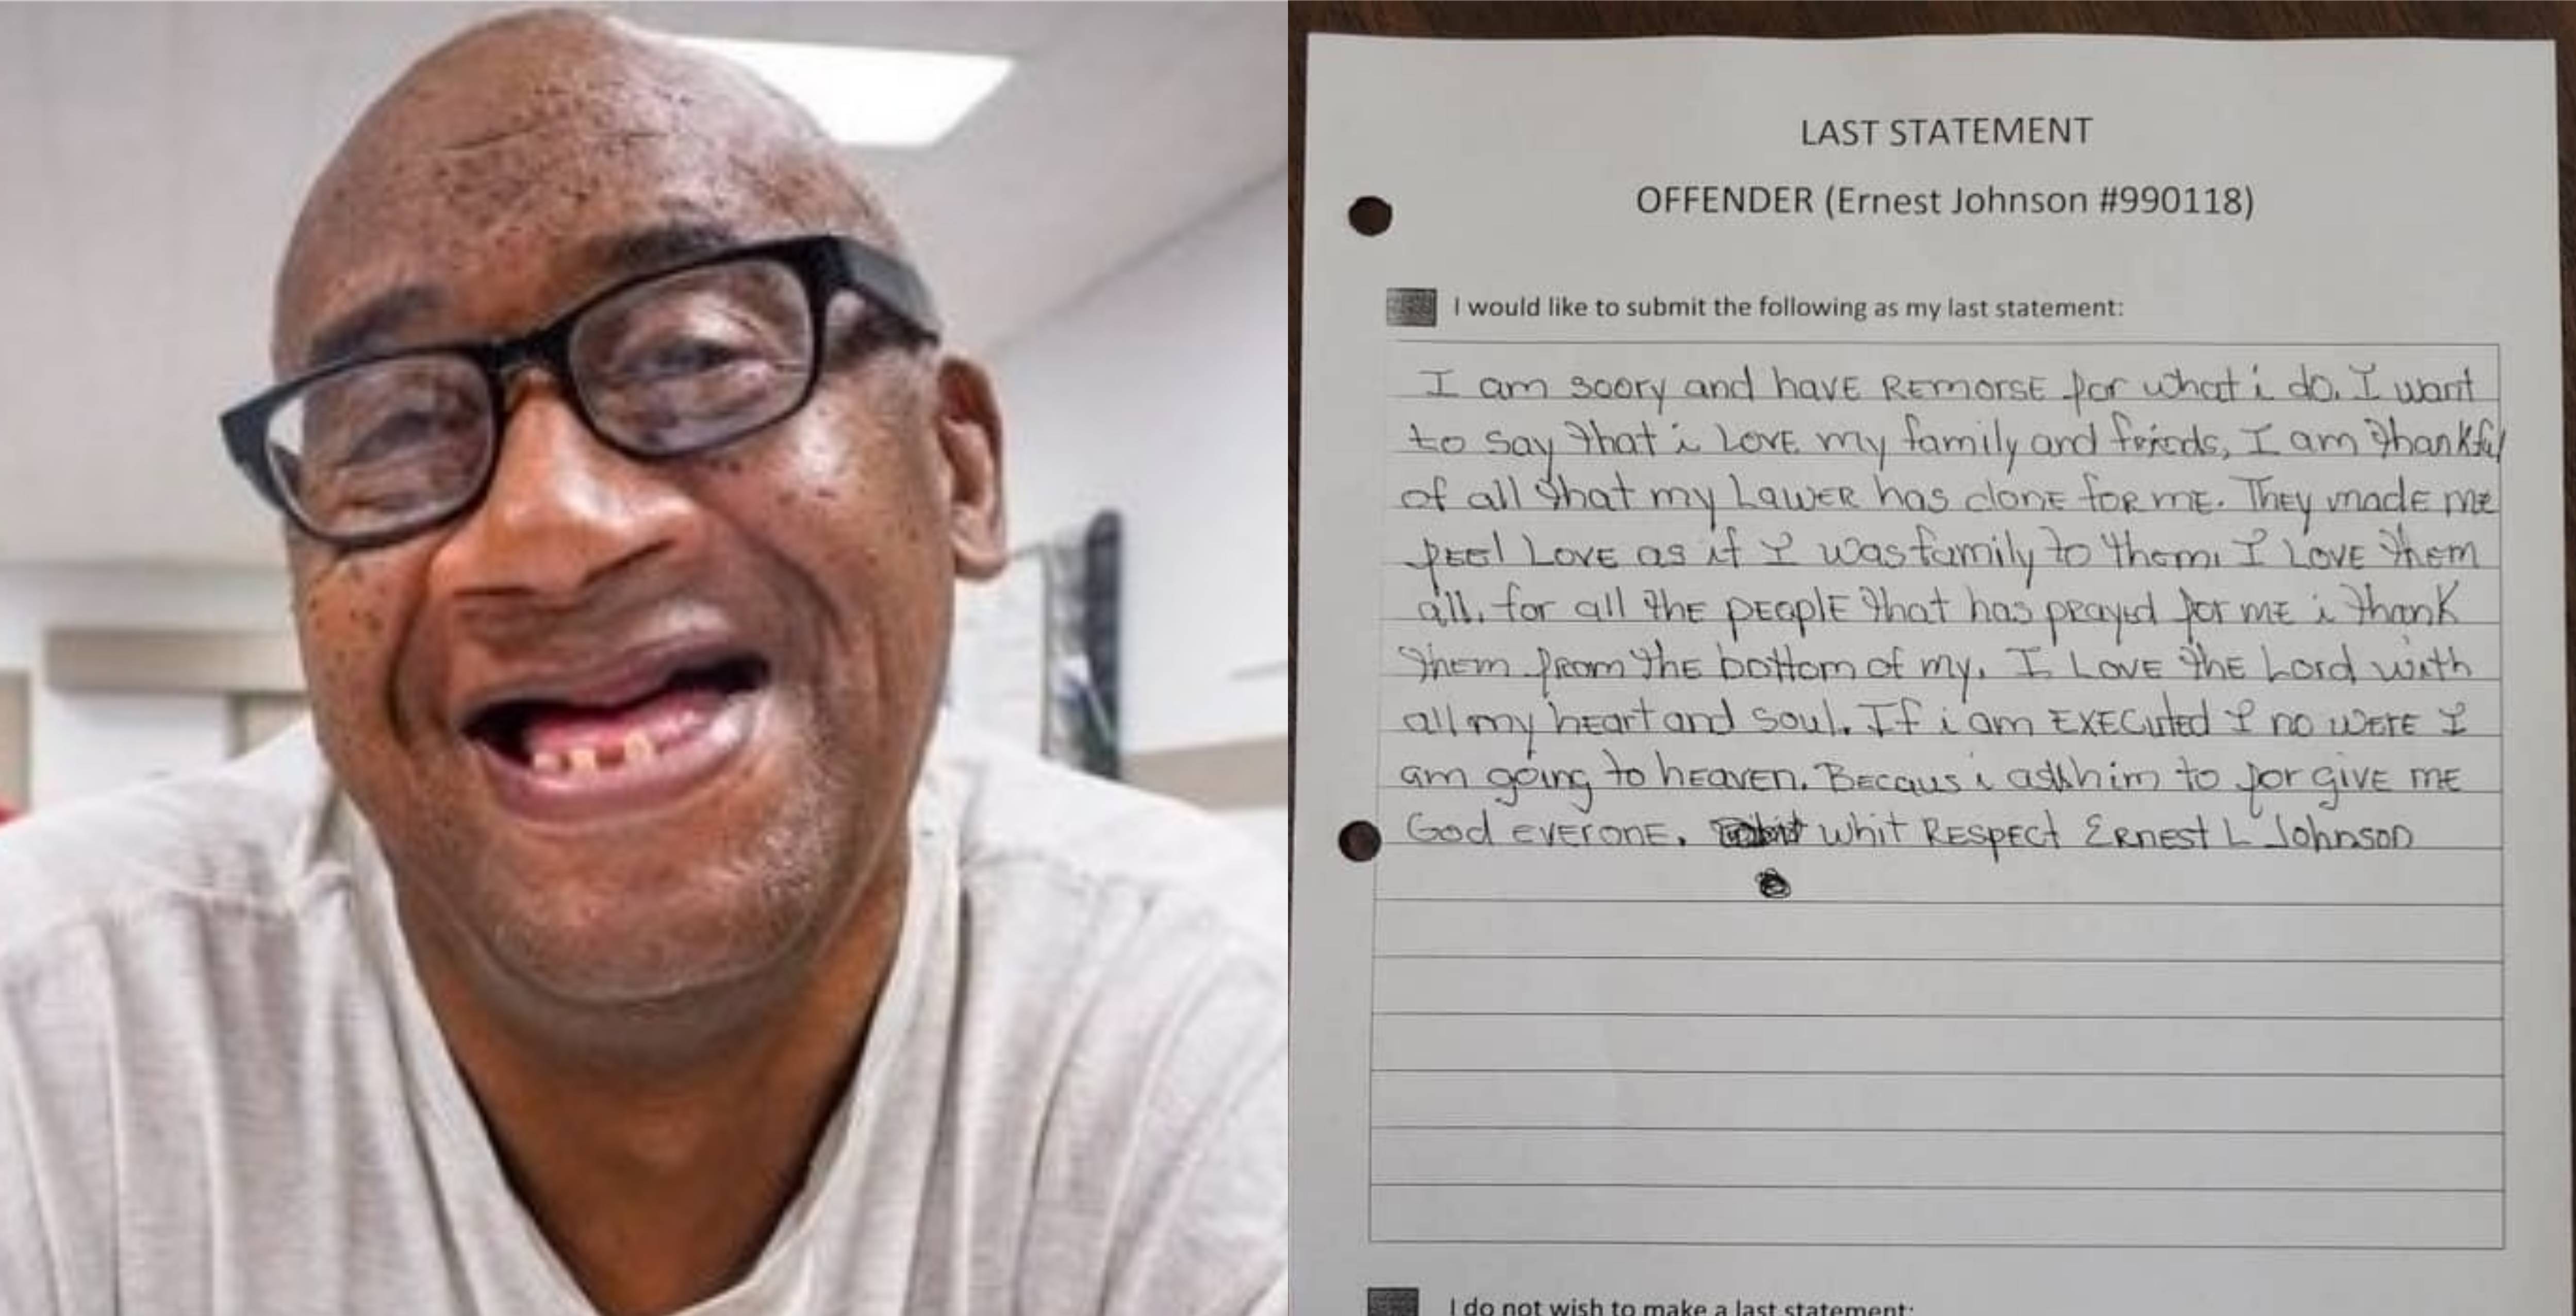 LAST STATEMENT
OFFENDER (Ernest Johnson #990118)
I would like to submit the following as my last statement:
I am soory and have REmorsE for what i do. I want
to say that i LovE my family and friends, I am thankful
of all that my LawER has donE foR mE. They madE mE
fEEl LovE as if I was family to them. I LovE them
all. for all thE pEoplE that has prayed for mE i thank
them from thE bottom of my. I LovE thE Lord with
all my hEart and soul. If i am EXECuted I no wERE I
am going to hEavEn. BEcaus i ask him to forgivE mE
God EvERonE. whit REspEct ERnest L Johnson
I do not wish to make a last statement: